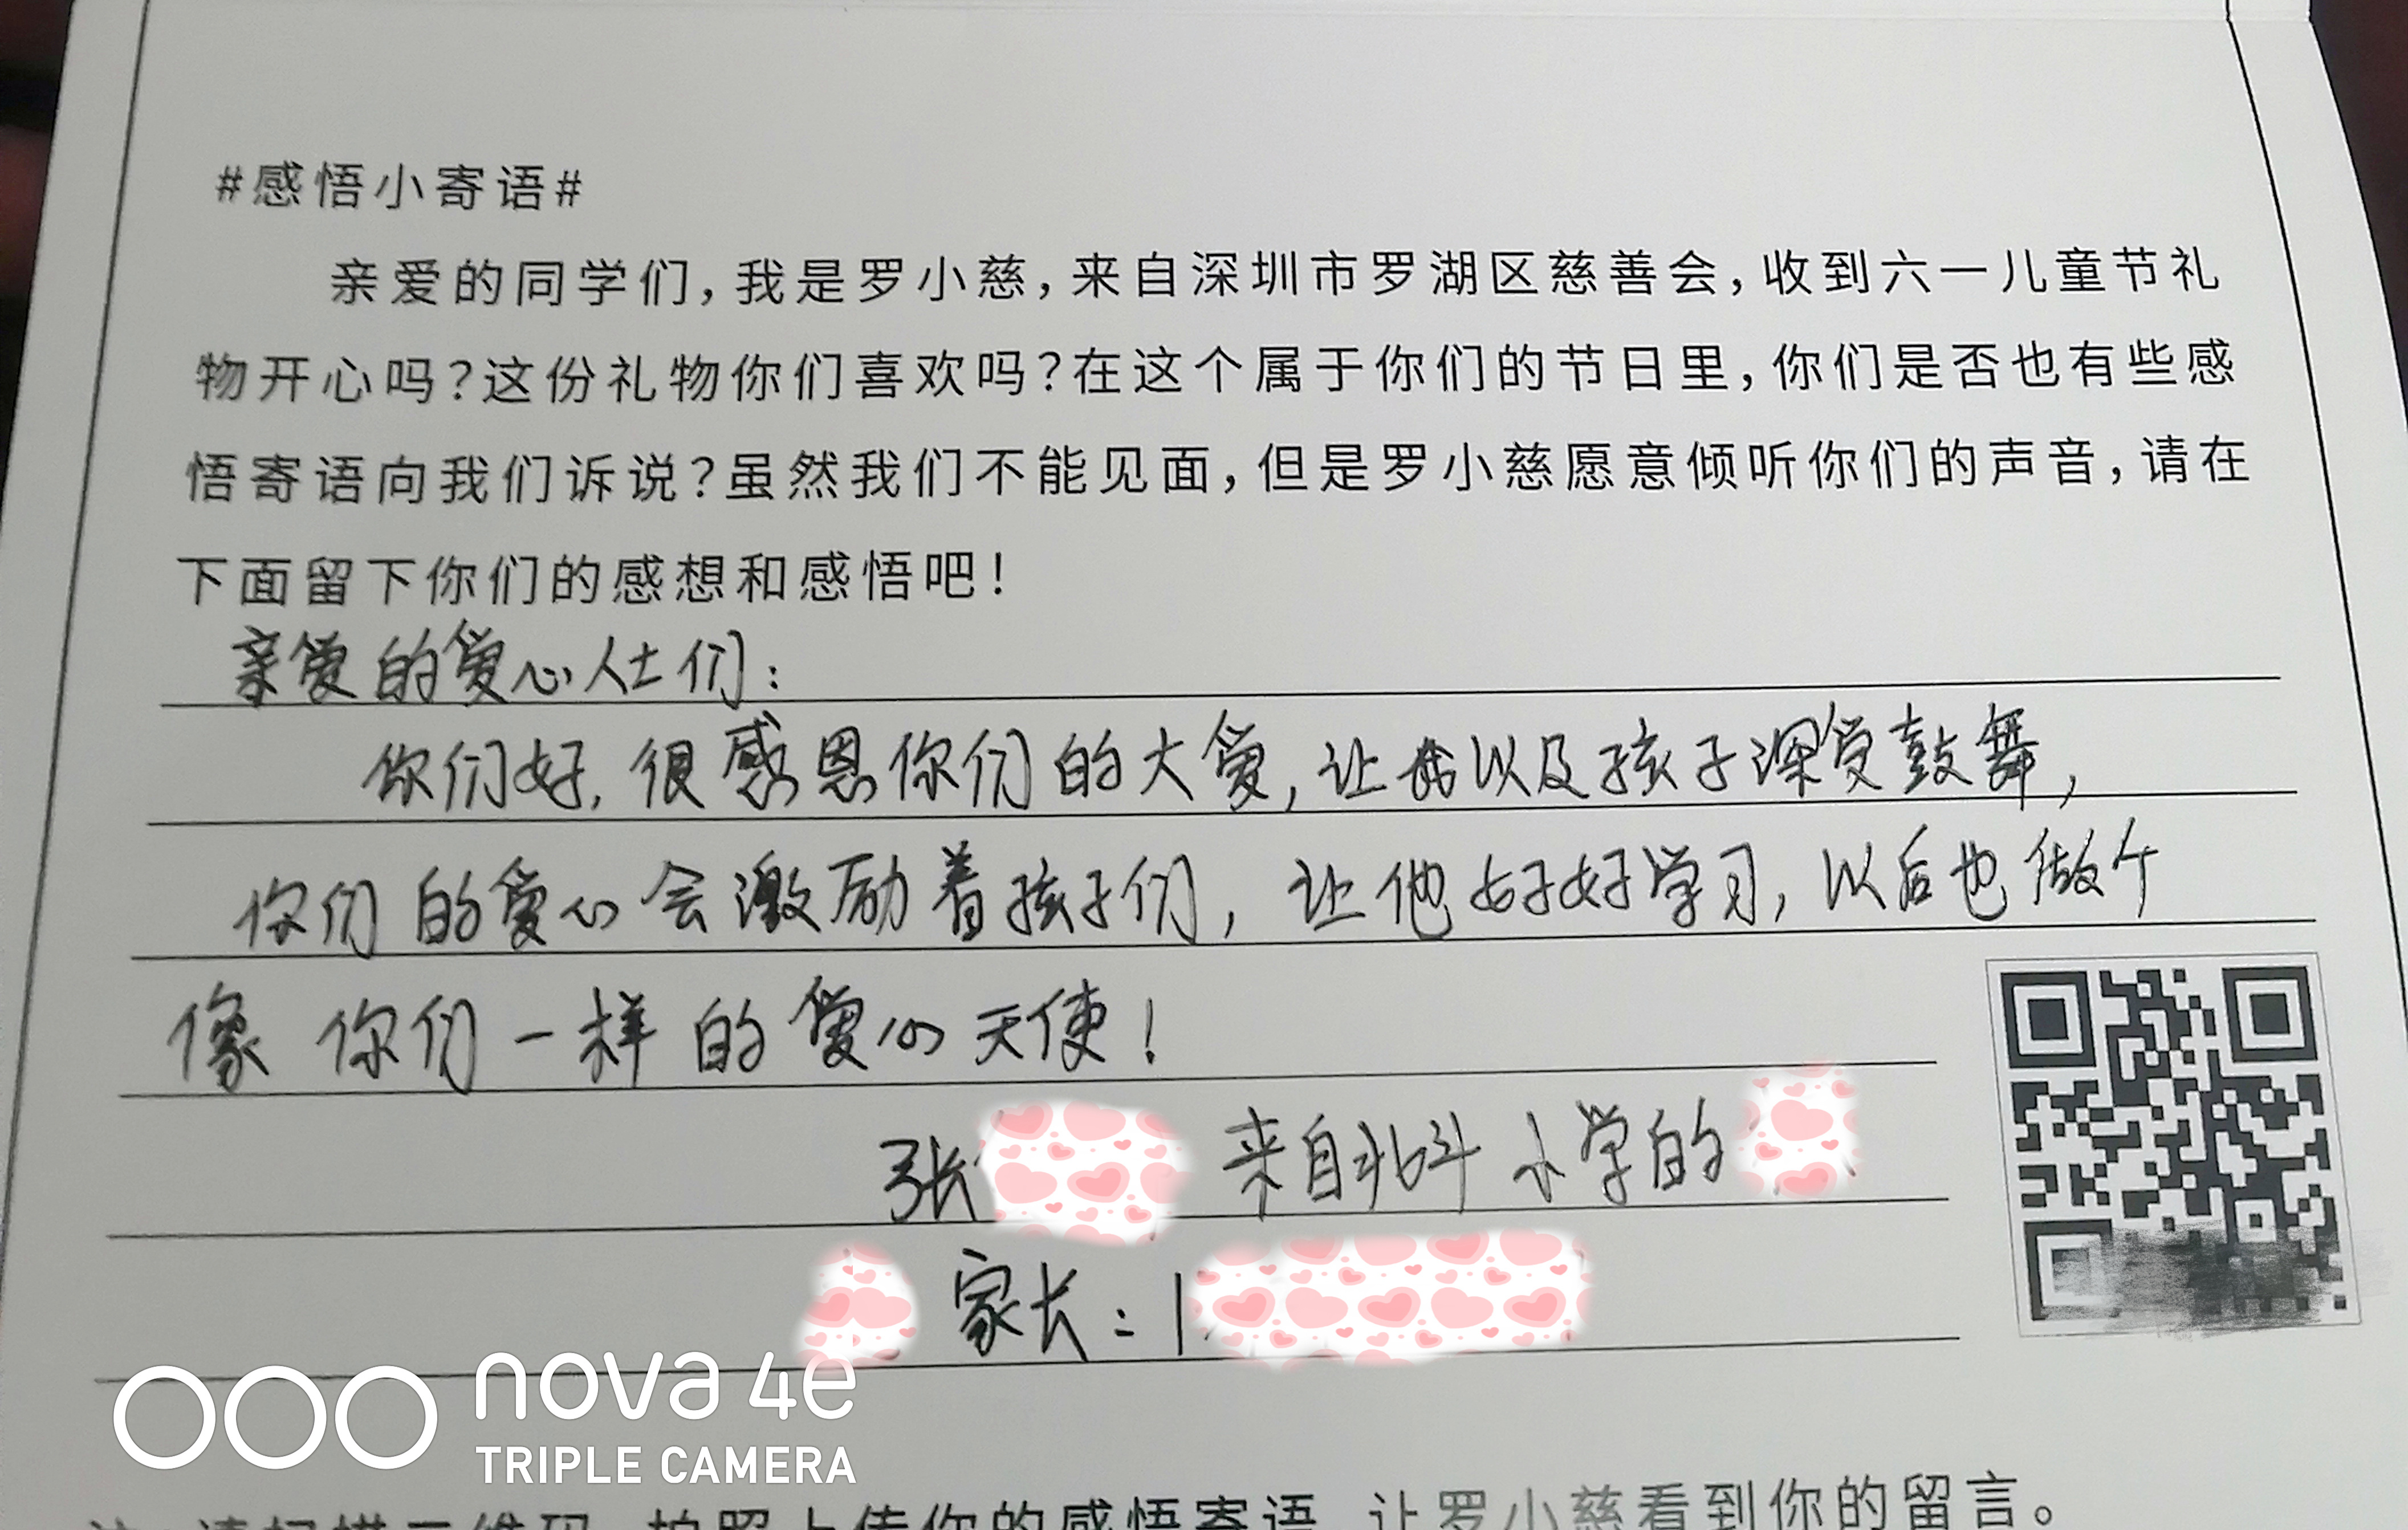 #感悟小寄语#
亲爱的同学们，我是罗小慈，来自深圳市罗湖区慈善会，收到六一儿童节礼
物开心吗？这份礼物你们喜欢吗？在这个属于你们的节日里，你们是否也有些感
悟寄语向我们诉说？虽然我们不能见面，但是罗小慈愿意倾听你们的声音，请在
下面留下你们的感想和感悟吧！
亲爱的爱心人士们：
你们好，很感恩你们的大爱，让我以及孩子深受鼓舞，
你们的爱心会激励着孩子们，让他好好学习，以后也做个
像你们一样的爱心天使！
张 来自北斗小学的
家长：1
nova 4e
TRIPLE CAMERA
注 请扫描二维码 拍照上传你的感悟寄语 让罗小慈看到你的留言。